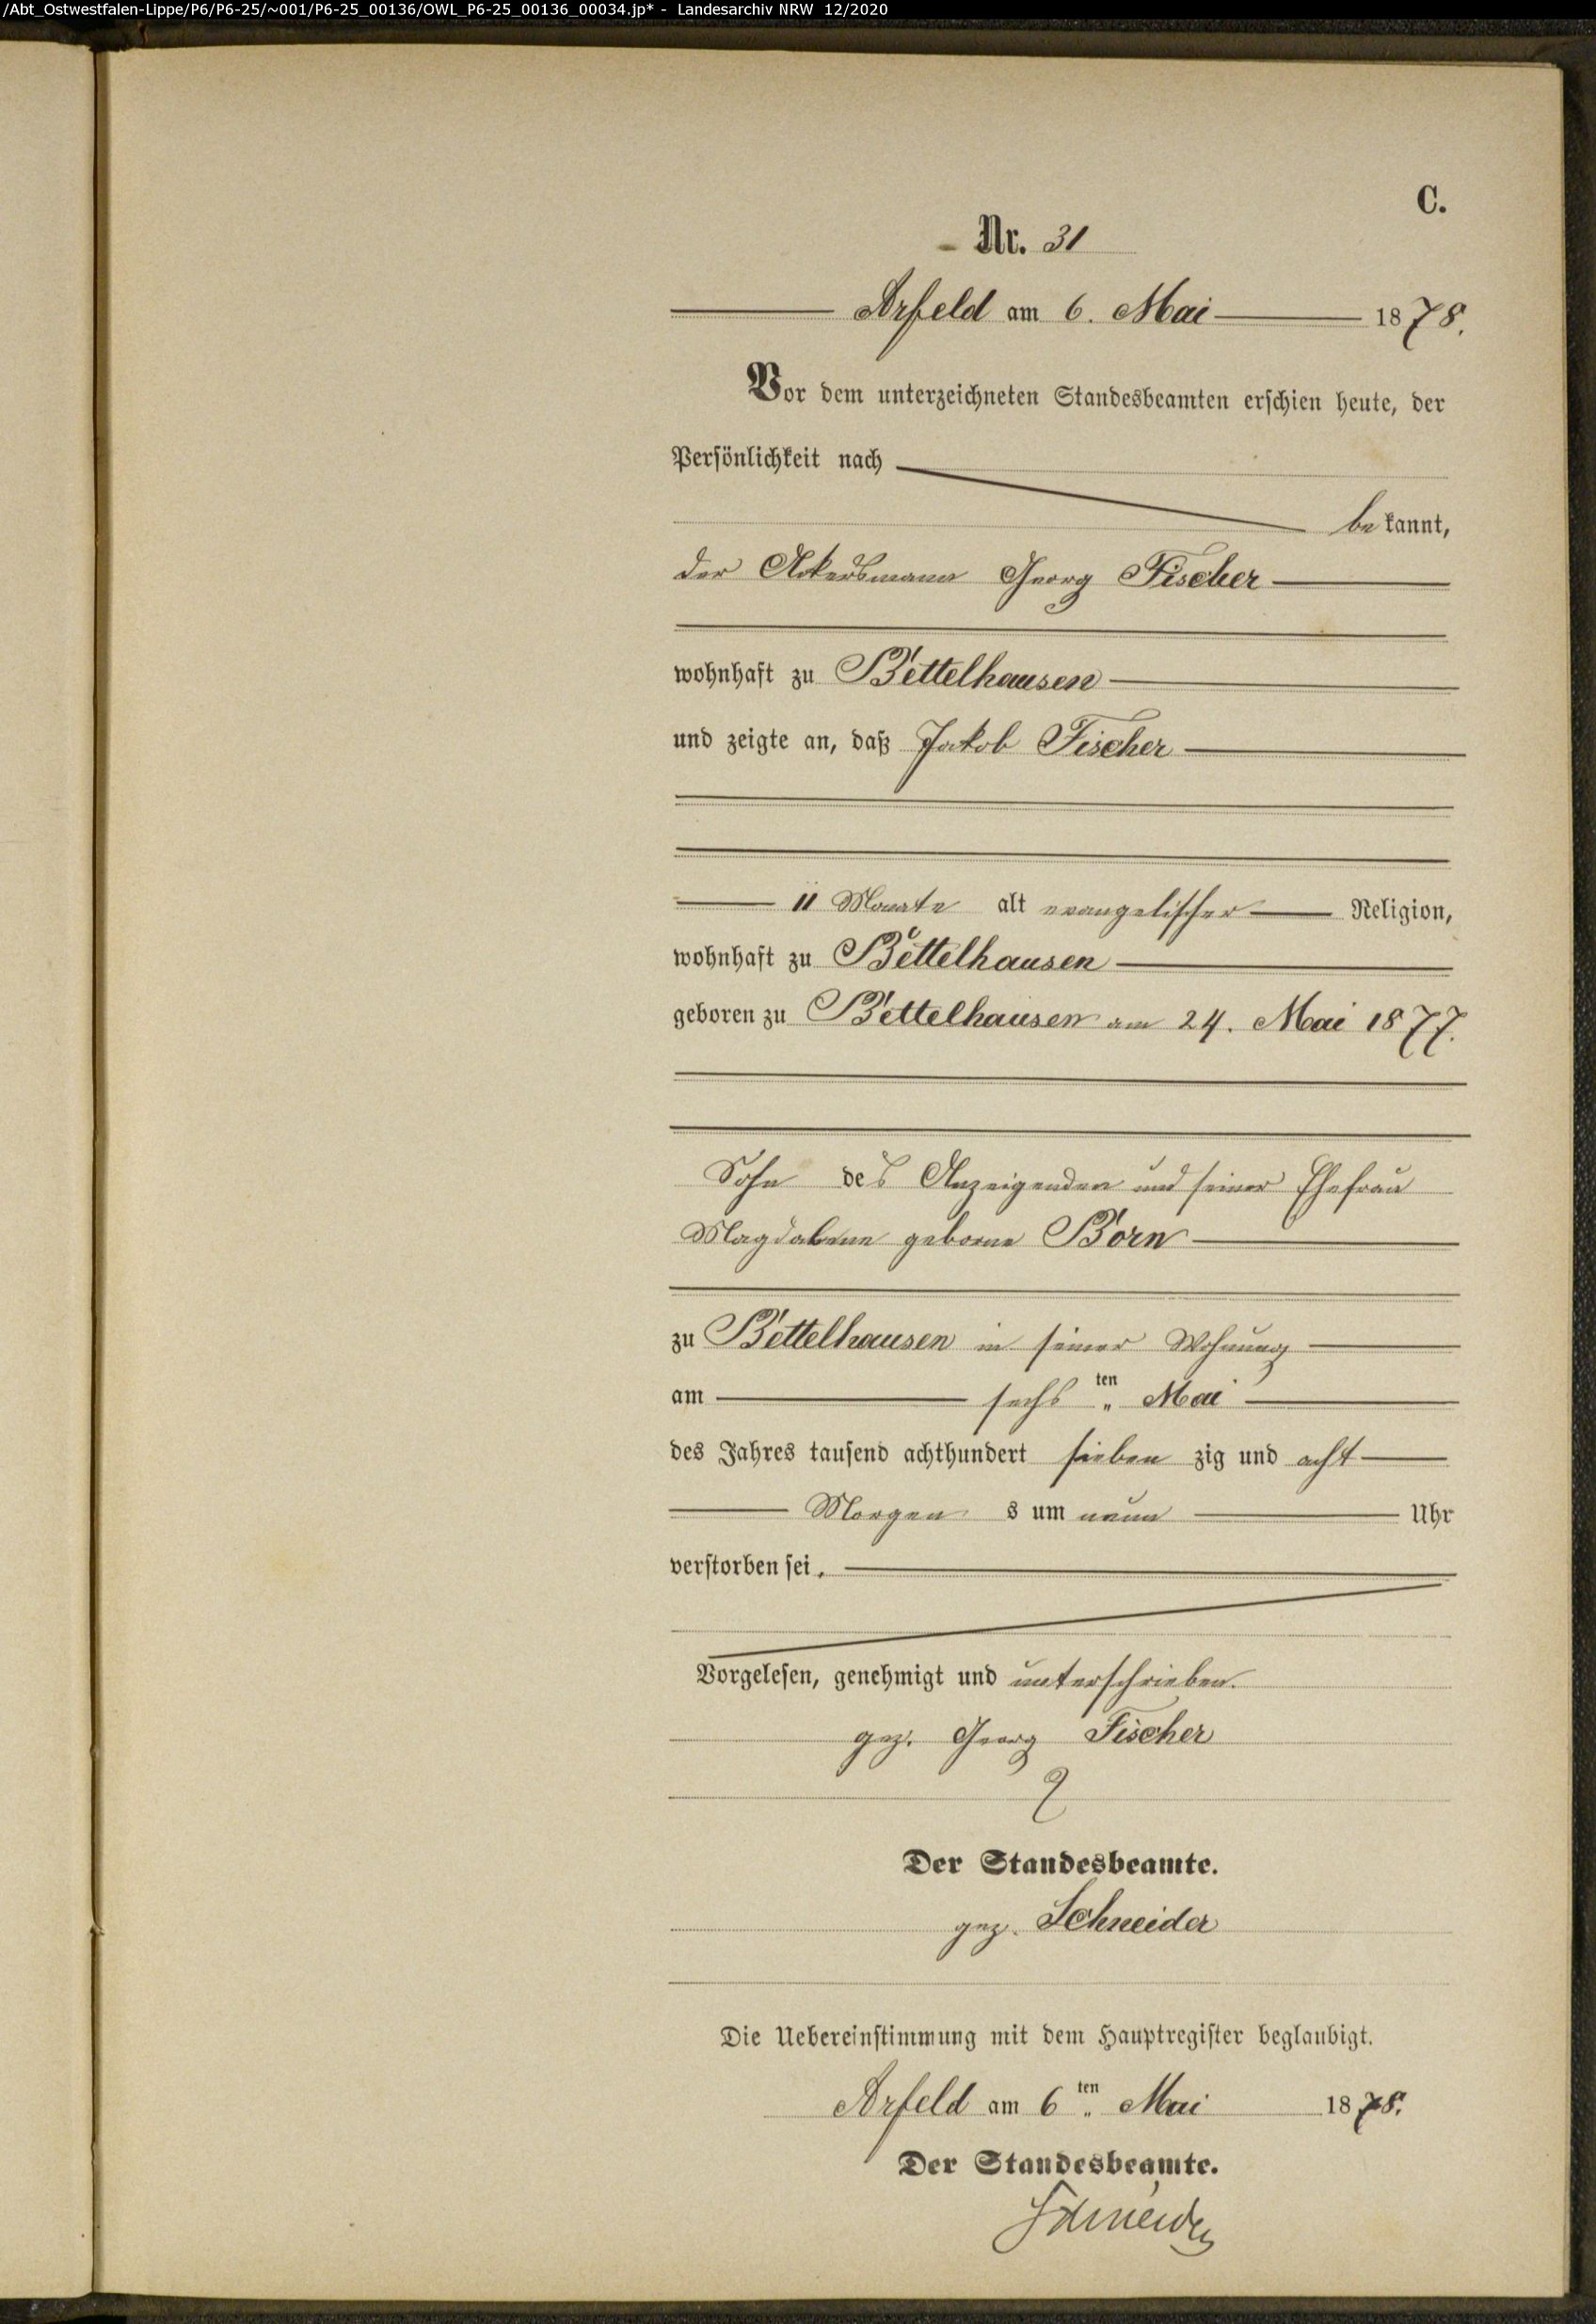 /Abt_Ostwestfalen-Lippe/P6/P6-25/~001/P6-25_00136/OWL_P6-25_00136_00034.jp* - Landesarchiv NRW 12/2020
C.
Nr. 31
Arfeld am 6. Mai 1878.
Vor dem unterzeichneten Standesbeamten erschien heute, der
Persönlichkeit nach
be kannt,
der Ackersmann Georg Fischer
wohnhaft zu Bettelhausen
und zeigte an, daß Jakob Fischer
11 Monate alt evangelischer Religion,
wohnhaft zu Bettelhausen
geboren zu Bettelhausen am 24. Mai 1877.
Sohn des Anzeigenden und seiner Ehefrau
Magdalene geborne Born
zu Bettelhausen in seiner Wohnung
am sechs ten Mai
des Jahres tausend achthundert sieben zig und acht
Morgen s um neun Uhr
verstorben sei.
Vorgelesen, genehmigt und unterschrieben.
gez. Georg Fischer
Der Standesbeamte.
gez. Schneider
Die Uebereinstimmung mit dem Hauptregister beglaubigt.
Arfeld am 6ten Mai 1878.
Der Standesbeamte.
Schneider